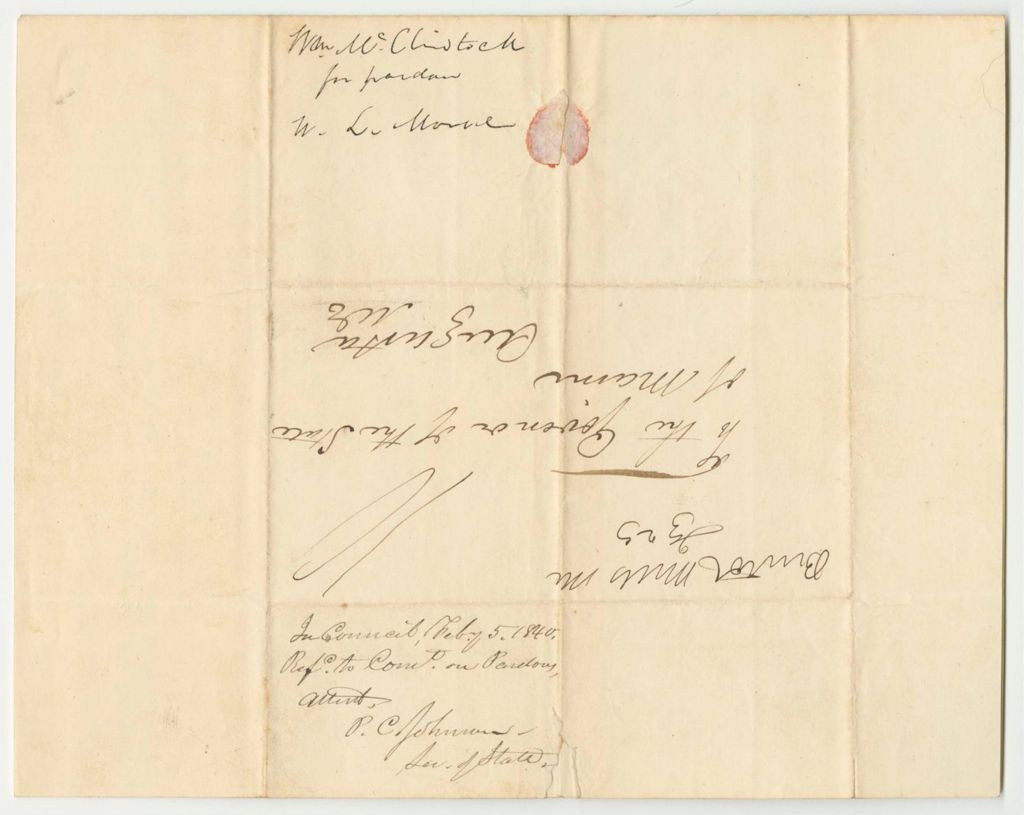 Wm. Mc. Clintock
for pardon
W. L. Morse
Bristol Mills Me
To the Govenor of the State
of Maine
Augusta
Me
In Council, Feby 5. 1840.
Refd. to Comte. on Pardons,
attest,
P. C. Johnson
Sec. of State.